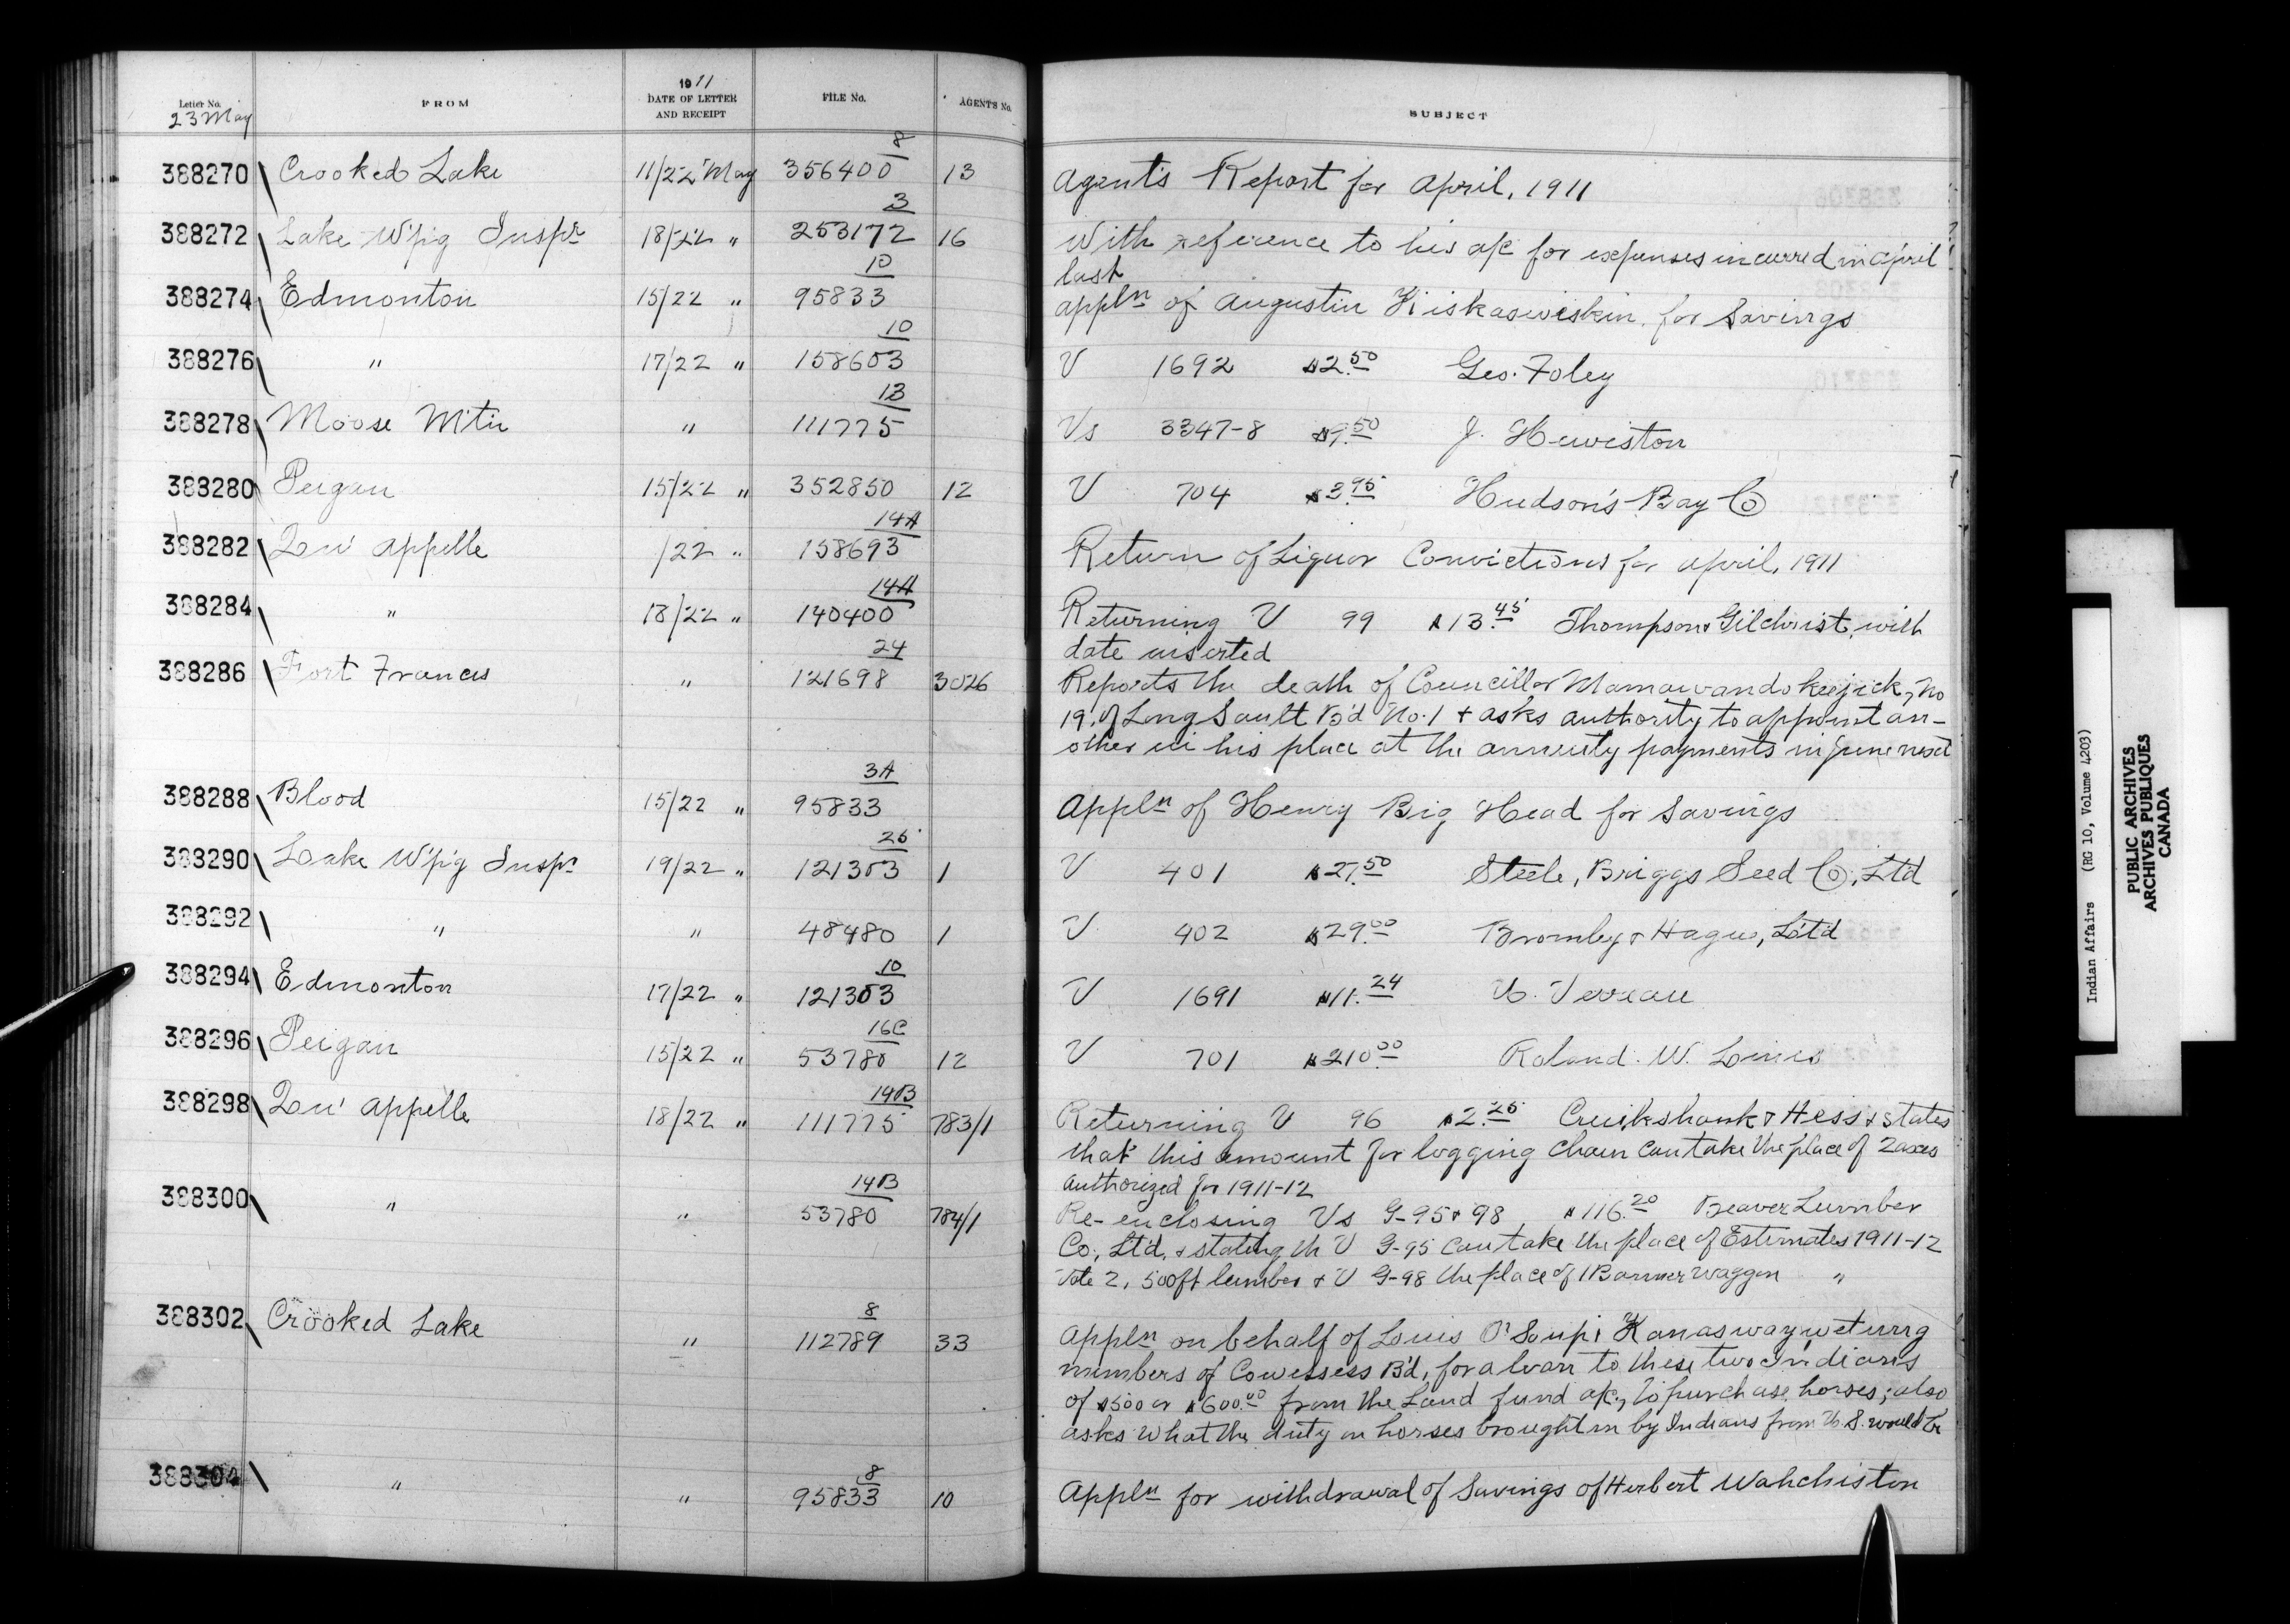 Letter No. FROM 1911 DATE OF LETTER AND RECEIPT FILE No. AGENT'S No. SUBJECT
23 May
388270 Crooked Lake 11/22 May 356400 8 13 Agent's Report for April, 1911
388272 Lake W'pig Inspr 18/22 " 253172 3 16 With reference to his a/c for expenses incurred in April
last
388274 Edmonton 15/22 " 95833 10 Appln of Augustin Kiskasiwiskin for Savings
388276 " 17/22 " 158603 10 V 1692 $2.50 Geo. Foley
388278 Moose Mtn " 111775 13 Vs 3347-8 $9.50 J. Hewiston
388280 Peigan 15/22 " 352850 12 V 704 $3.95 Hudson's Bay Co
388282 Qu' Appelle /22 " 158693 14A Return of Liquor Convictions for April, 1911
388284 " 18/22 " 140400 14A Returning V 99 $13.45 Thompson & Gilchrist, with
date inserted
388286 Fort Frances " 121698 24 3026 Reports the death of Councillor Mamawandokeejick, No
19, of Long Sault B'd No. 1 & asks authority to appoint an-
other in his place at the annuity payments in June next
388288 Blood 15/22 " 95833 3A Appln of Henry Big Head for Savings
388290 Lake W'p'g Inspr 19/22 " 121303 25 1 V 401 $27.50 Steele, Briggs Seed Co, Ltd
388292 " " 48480 1 V 402 $29.00 Bromley & Hague, Ltd
388294 Edmonton 17/22 " 121303 10 V 1691 $11.24 Verreau
388296 Peigan 15/22 " 53780 16C 12 V 701 $210.00 Roland. W. Lines
388298 Qu' Appelle 18/22 " 111775 14B 783/1 Returning V 96 $2.25 Cruikshank & Hess & states
that this amount for logging chain can take the place of 2 axes
authorized for 1911-12
388300 " " 53780 14B 784/1 Re-enclosing Vs G-95 & 98 $116.20 Beaver Lumber
Co., Ltd, & stating th V G-95 can take the place of Estimates 1911-12
Vote 2, 500 ft lumber & V G-98 the place of 1 Banner waggon "
388302 Crooked Lake " 112789 8 33 Appln on behalf of Louis O'Soup & Kanaswaywetung
members of Cowessess B'd, for a loan to these two Indians
of $500 or $600.00 from the Land fund a/c, to purchase horses; also
asks what the duty on horses brought in by Indians from U.S. would be
388304 " " 95833 8 10 Appln for withdrawal of Savings of Herbert Wahchiston
Indian Affairs (RG 10, Volume 4203)
PUBLIC ARCHIVES
ARCHIVES PUBLIQUES
CANADA